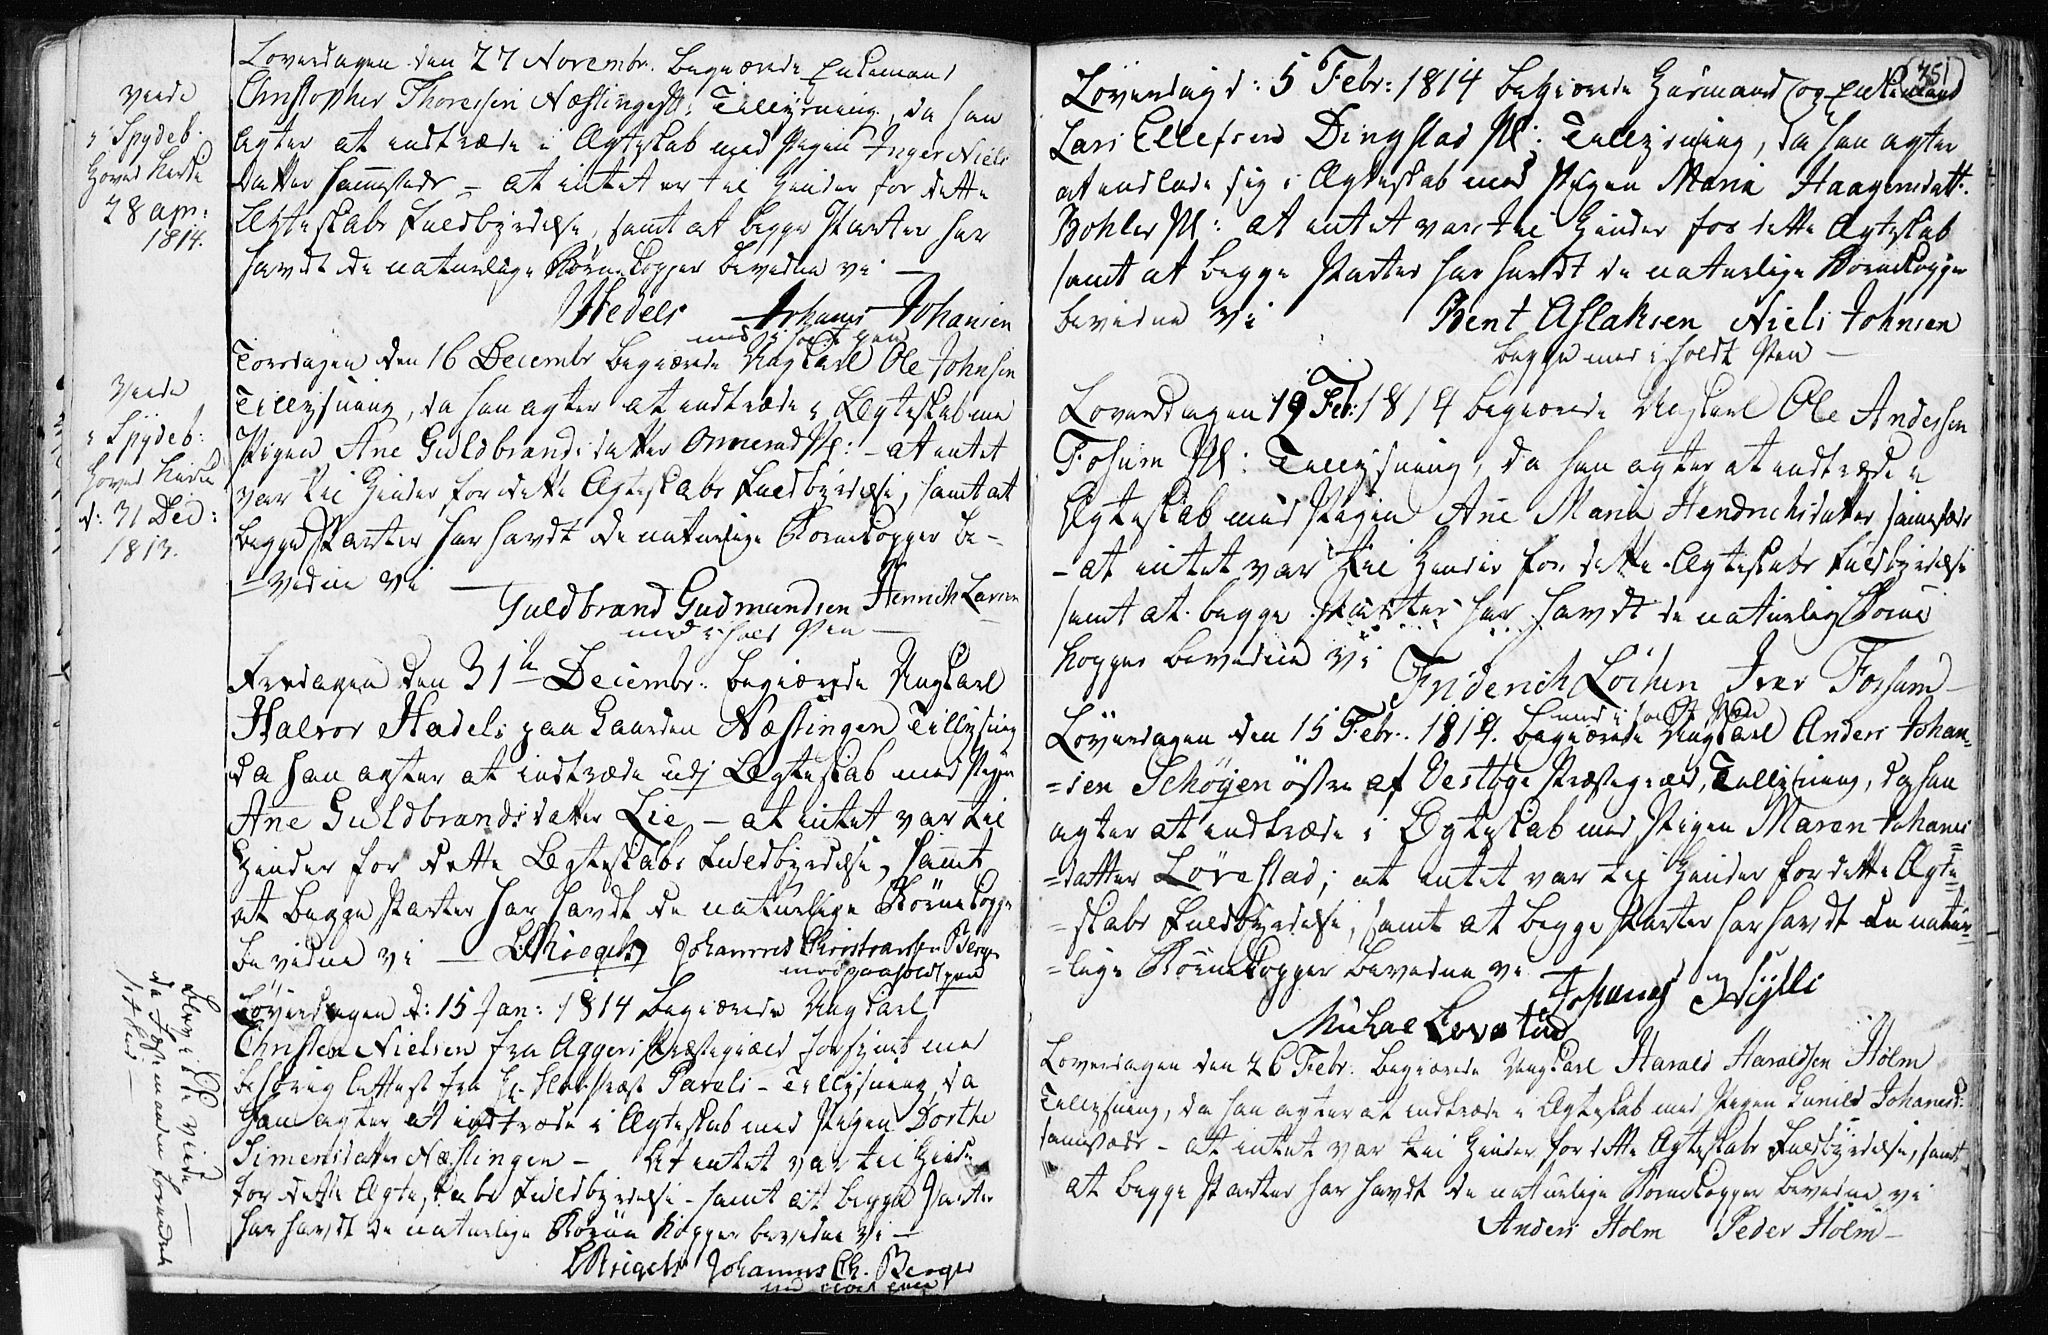 Loverdagen den 27 Novembr. begiærede Enkemand
Christopher Thoressen Næslinge Pl: Tillysning, da han
agter at indtræde i Ægteskab med Pigen Inger Niels
datter sammesteds – at intet er til Hinder for dette
Ægteskabs Fuldbyrdelse, samt at begge Parter har
havdt de naturlige Börnekopper bevidne vi –
Hedels Johanes Johansen
med i holdt Pen
Viede
i Spydeb.
Hoved Kirke
28 apr:
1814.
Torsdagen den 16 Decembr begiærede Ungkarl Ole Johnsen
Tillysning, da han agter at indtræde i Ægteskab med
Pigen Ane Guldbrandsdatter Pl: – at intet
var til Hinder for dette Ægteskabs Fuldbyrdelse, samt at
begge Parter har havdt de naturlige Börnekopper be–
–vidne vi – Guldbrand Gudmundsen Henrich Larsen
med i hold Pen –
Viede
i Spydeb:
Hoved Kirke
d: 31 Dec:
1813.
Fredagen den 31te Decembr. begiærede Ungkarl
Halvor Hadels paa Gaarden Næslingen Tillysning
da han agter at indtræde udj Ægteskab med Pigen
Ane Guldbrandsdatter Lie – at intet var til
Hinder for dette Ægteskabs Fuldbyrdelse, samt
at begge Parter har havdt de naturlige Börnekopper
bevidne vi – Johannes Christiansen Berger
med paaholdt pen
Löverdagen d: 15 Jan: 1814 begiærede Ungkarl
Christen Nielsen fra Aggers Præstegield forsynet med
behörig Attest fra Hr. Præst Pavels – Tillysning, da
han agter at indtræde i Ægteskab med Pigen Dorthe
Simensdatter Næslingen – At intet var til Hinder
for dette Ægteskabs Fuldbyrdelse – samt at begge Parter
har havdt de naturlige Börne Kopper bevidne vi –
Johannes Ch. Berger
med holdt pen
Blev ikke viede –
da Fæstemanden forandret
sit Sind –
351
Löverdag d: 5 Febr: 1814 begiærede Huusmand og Enkemand
Lars Ellefsen Dingstad Pl: Tillysning, da han agter
at indlade sig i Ægteskab med Pigen Maria Haagensdatt:
Bohler Pl: at intet var til Hinder for dette Ægteskab
samt at begge Parter har havdt de naturlige Börnekopper
bevidne vi Bent Aslaksen Niels Johnsen
begge med i holdt Pen –
Loverdagen 19 Feb: 1814 begiærede Ungkarl Ole Andersen
Fosum Pl: Tillysning, da han agter at indtræde i
Ægteskab med Pigen Ane Maria Hendrichsdatter sammestæds
– at intet var til Hinder for dette Ægteskabs Fuldbyrdelse
samt at begge Parter har havdt de naturlig Börne
kopper bevidne vi Friderich Löchen Iver Fossum –
med i holdt Pen
Löverdagen den 15 Febr. 1814. begiærede Ungkarl Anders Johan=
=sen Schöyen östre af Vestbye Præstegield, Tillysning, da han
agter at indtræde i Ægteskab med Pigen Maren Johanes=
=datter Lövestad; at intet var til Hinder for dette Ægte=
=skabs Fuldbyrdelse, samt at begge Parter har havdt de natur=
=lige Börnekopper bevidne vi Johanes Sylli
Michae Lovestad
Loverdagen den 26 Febr. begiærede Ungkarl Harald Haraldsen Holm
Tillysning, da han agter at indtræde i Ægteskab med Pigen Gunild Johanesd:
samestæds – at intet var til Hinder for dette Ægteskabs Fuldbyrdelse, samt
at begge Parter har havdt de naturlige Börnekopper bevidne vi
Anders Holm Peder Holm –